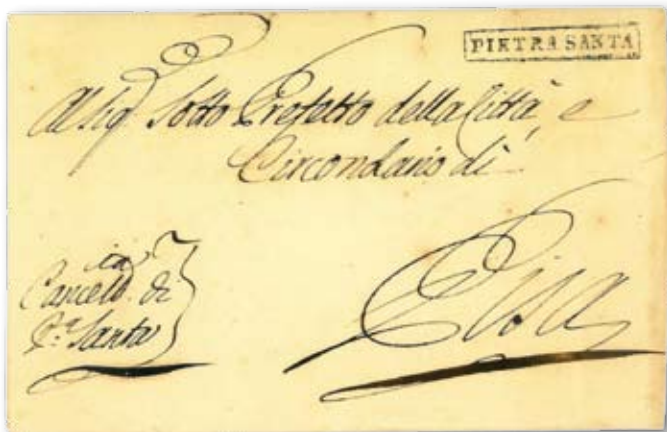 PIETRA SANTA
Al Sig.r Sotto Prefetto della Città, e
Circondario di
Pisa
Cancell.ria di
P.a Santa